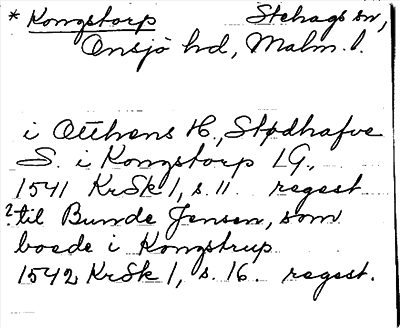 * Kongstorp Stehags sn,
Onsjö hd, Malm. l.
i Otthens H., Stødhafve
S. i Kongstorp 1G.,
1541 KrSk 1, s. 11. regest
? til Bunde Jensen, som
boede i Kongstrup
1542 KrSk 1, s. 16. regest.